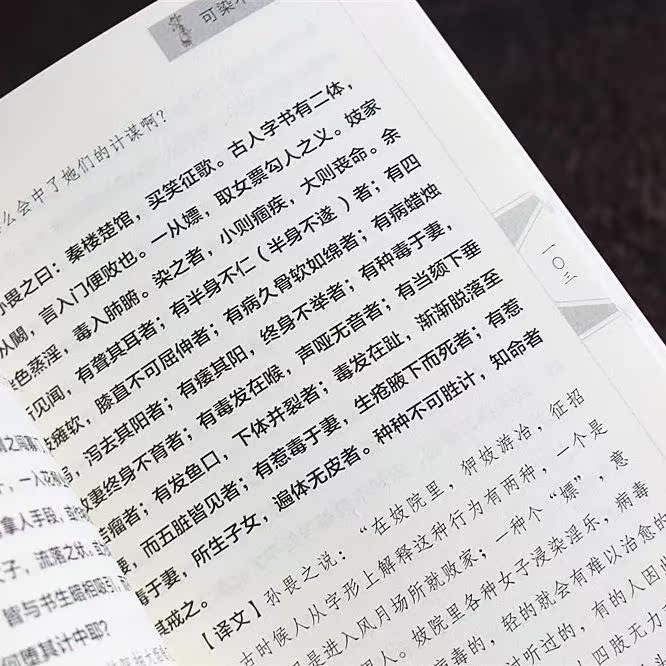 可染
么会中了她们的计谋啊？
畏之曰：秦楼楚馆，买笑征歌。古人字书有二体，
从闝，言入门便败也。一从嫖，取女票勾人之义。妓家
色蒸淫，毒入肺腑。染之者，小则痼疾，大则丧命。余
见闻，有聋其耳者；有半身不仁（半身不遂）者；有四
瘫软，膝直不可屈伸者；有病久骨软如绵者；有病蜡烛
泻去其阳者；有痿其阳，终身不举者；有种毒于妻，
妻终身不育者；有毒发在喉，声哑无音者；有当颏下垂
瘤者；有发鱼口，下体并裂者；毒发在趾，渐渐脱落至
妻，而五脏皆见者；有惹毒于妻，生疮腋下而死者；有惹
毒于妻，所生子女，遍体无皮者。种种不可胜计，知命者
其戒之。
【译文】孙畏之说：“在妓院里，狎妓游冶，征招
古时候人从字形上解释这种行为有两种，一个是
是进入风月场所就败家；一种个“嫖”，意
人。妓院里各种女子浸染淫乐，病毒
病毒的，轻的就会有难以治愈的
听过的，有的人因
四肢无力
一〇三
，一入花
拿人手段，或
子，流落之状，或
皆与书生暗相吸引，
堕其计中耶？